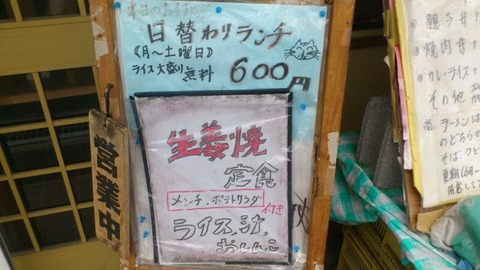 本日のおすすめ!!
日替わりランチ
(月〜土曜日)
ライス大盛り無料
600円
生姜焼
定食
メンチ、ポテトサラダ
付き
ライス、汁、
おしんこ
営業中
親子丼
焼肉丼
カレーライス
その他
ラーメンは
のどちらか
そば